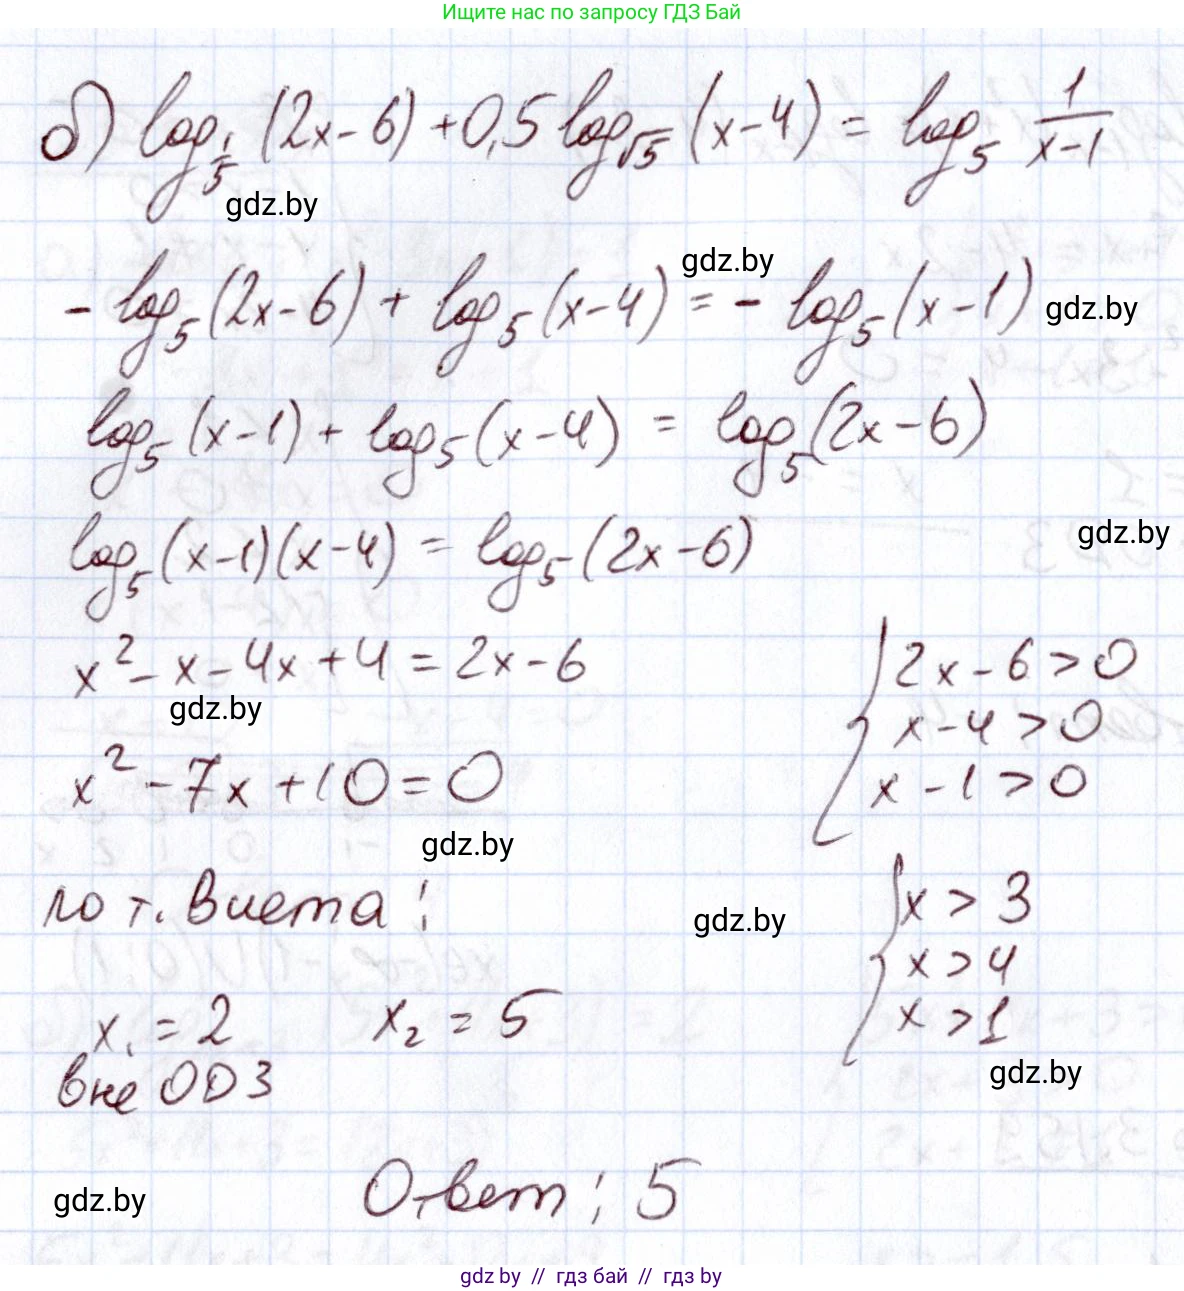 Ищите нас по запросу ГДЗ Бай
б) log_{1/5} (2x-6) + 0,5 log_{√5} (x-4) = log_5 1/(x-1)
gdz.by
gdz.by
- log_5 (2x-6) + log_5 (x-4) = - log_5 (x-1)
gdz.by
log_5 (x-1) + log_5 (x-4) = log_5 (2x-6)
log_5 (x-1)(x-4) = log_5 (2x-6)
gdz.by
x² - x - 4x + 4 = 2x - 6
gdz.by
x² - 7x + 10 = 0
{ 2x - 6 > 0
x - 4 > 0
x - 1 > 0
gdz.by
по т. Виета:
gdz.by
x₁ = 2 x₂ = 5
вне ОДЗ
{ x > 3
x > 4
x > 1
gdz.by
gdz.by
Ответ: 5
gdz by // гдз бай // гдз by